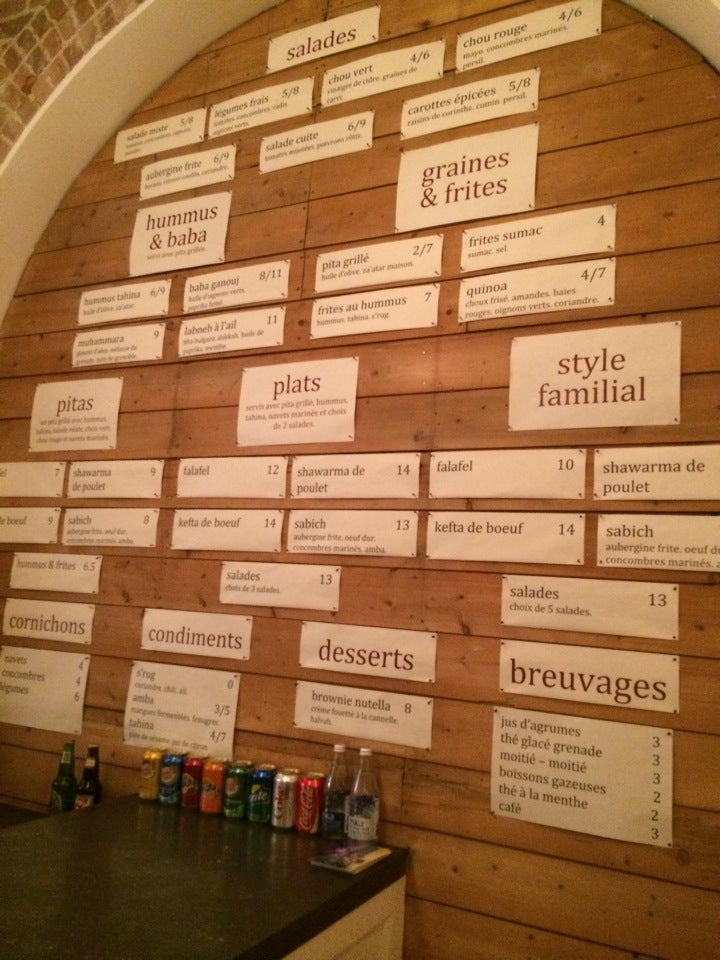 salades
chou rouge 4/6
mayo. concombres marinés.
persil.
chou vert 4/6
vinaigre de cidre. graines de
carvi.
légumes frais 5/8
tomates. concombres. radis.
oignons verts.
salade mixte 5/8
carottes épicées 5/8
raisins de corinthe. cumin. persil.
salade cuite 6/9
tomates mijotées. poivrons rôtis.
aubergine frite 6/9
graines
& frites
hummus
& baba
servis avec pita grillée.
frites sumac 4
sumac. sel.
pita grillé 2/7
huile d'olive. za'atar maison.
quinoa 4/7
choux frisé. amandes. baies
rouges. oignons verts. coriandre.
frites au hummus 7
hummus. tahina. s'rug.
hummus tahina 6/9
huile d'olive. za'atar
baba ganouj 8/11
huile d'oignons verts.
paprika fumé.
muhammara 9
labneh à l'ail 11
féta bulgare. dukkah. huile de
paprika. menthe.
pitas
un pita grillé avec hummus,
tahina, salade mixte, chou vert,
chou rouge et navets marinés.
plats
servis avec pita grillé, hummus,
tahina, navets marinés et choix
de 2 salades.
style
familial
7
shawarma 9
de poulet
falafel 12
shawarma de 14
poulet
falafel 10
shawarma de
poulet
de boeuf 9
sabich 8
aubergine frite. oeuf dur.
concombres marinés. amba.
kefta de boeuf 14
sabich 13
aubergine frite. oeuf dur.
concombres marinés. amba.
kefta de boeuf 14
sabich
aubergine frite. oeuf du
concombres marinés. a
hummus & frites 6.5
salades 13
choix de 3 salades.
salades 13
choix de 5 salades.
cornichons
navets 4
concombres 4
légumes 6
condiments
s'rug 0
coriandre. chili. ail.
amba 3/5
mangues fermentées. fenugrec.
tahina 4/7
pâte de sésame. jus de citron
desserts
brownie nutella 8
crème fouetté à la cannelle.
halvah.
breuvages
jus d'agrumes 3
thé glacé grenade 3
moitié – moitié 3
boissons gazeuses 2
thé à la menthe 2
café 3
Sprite
Coca-Cola